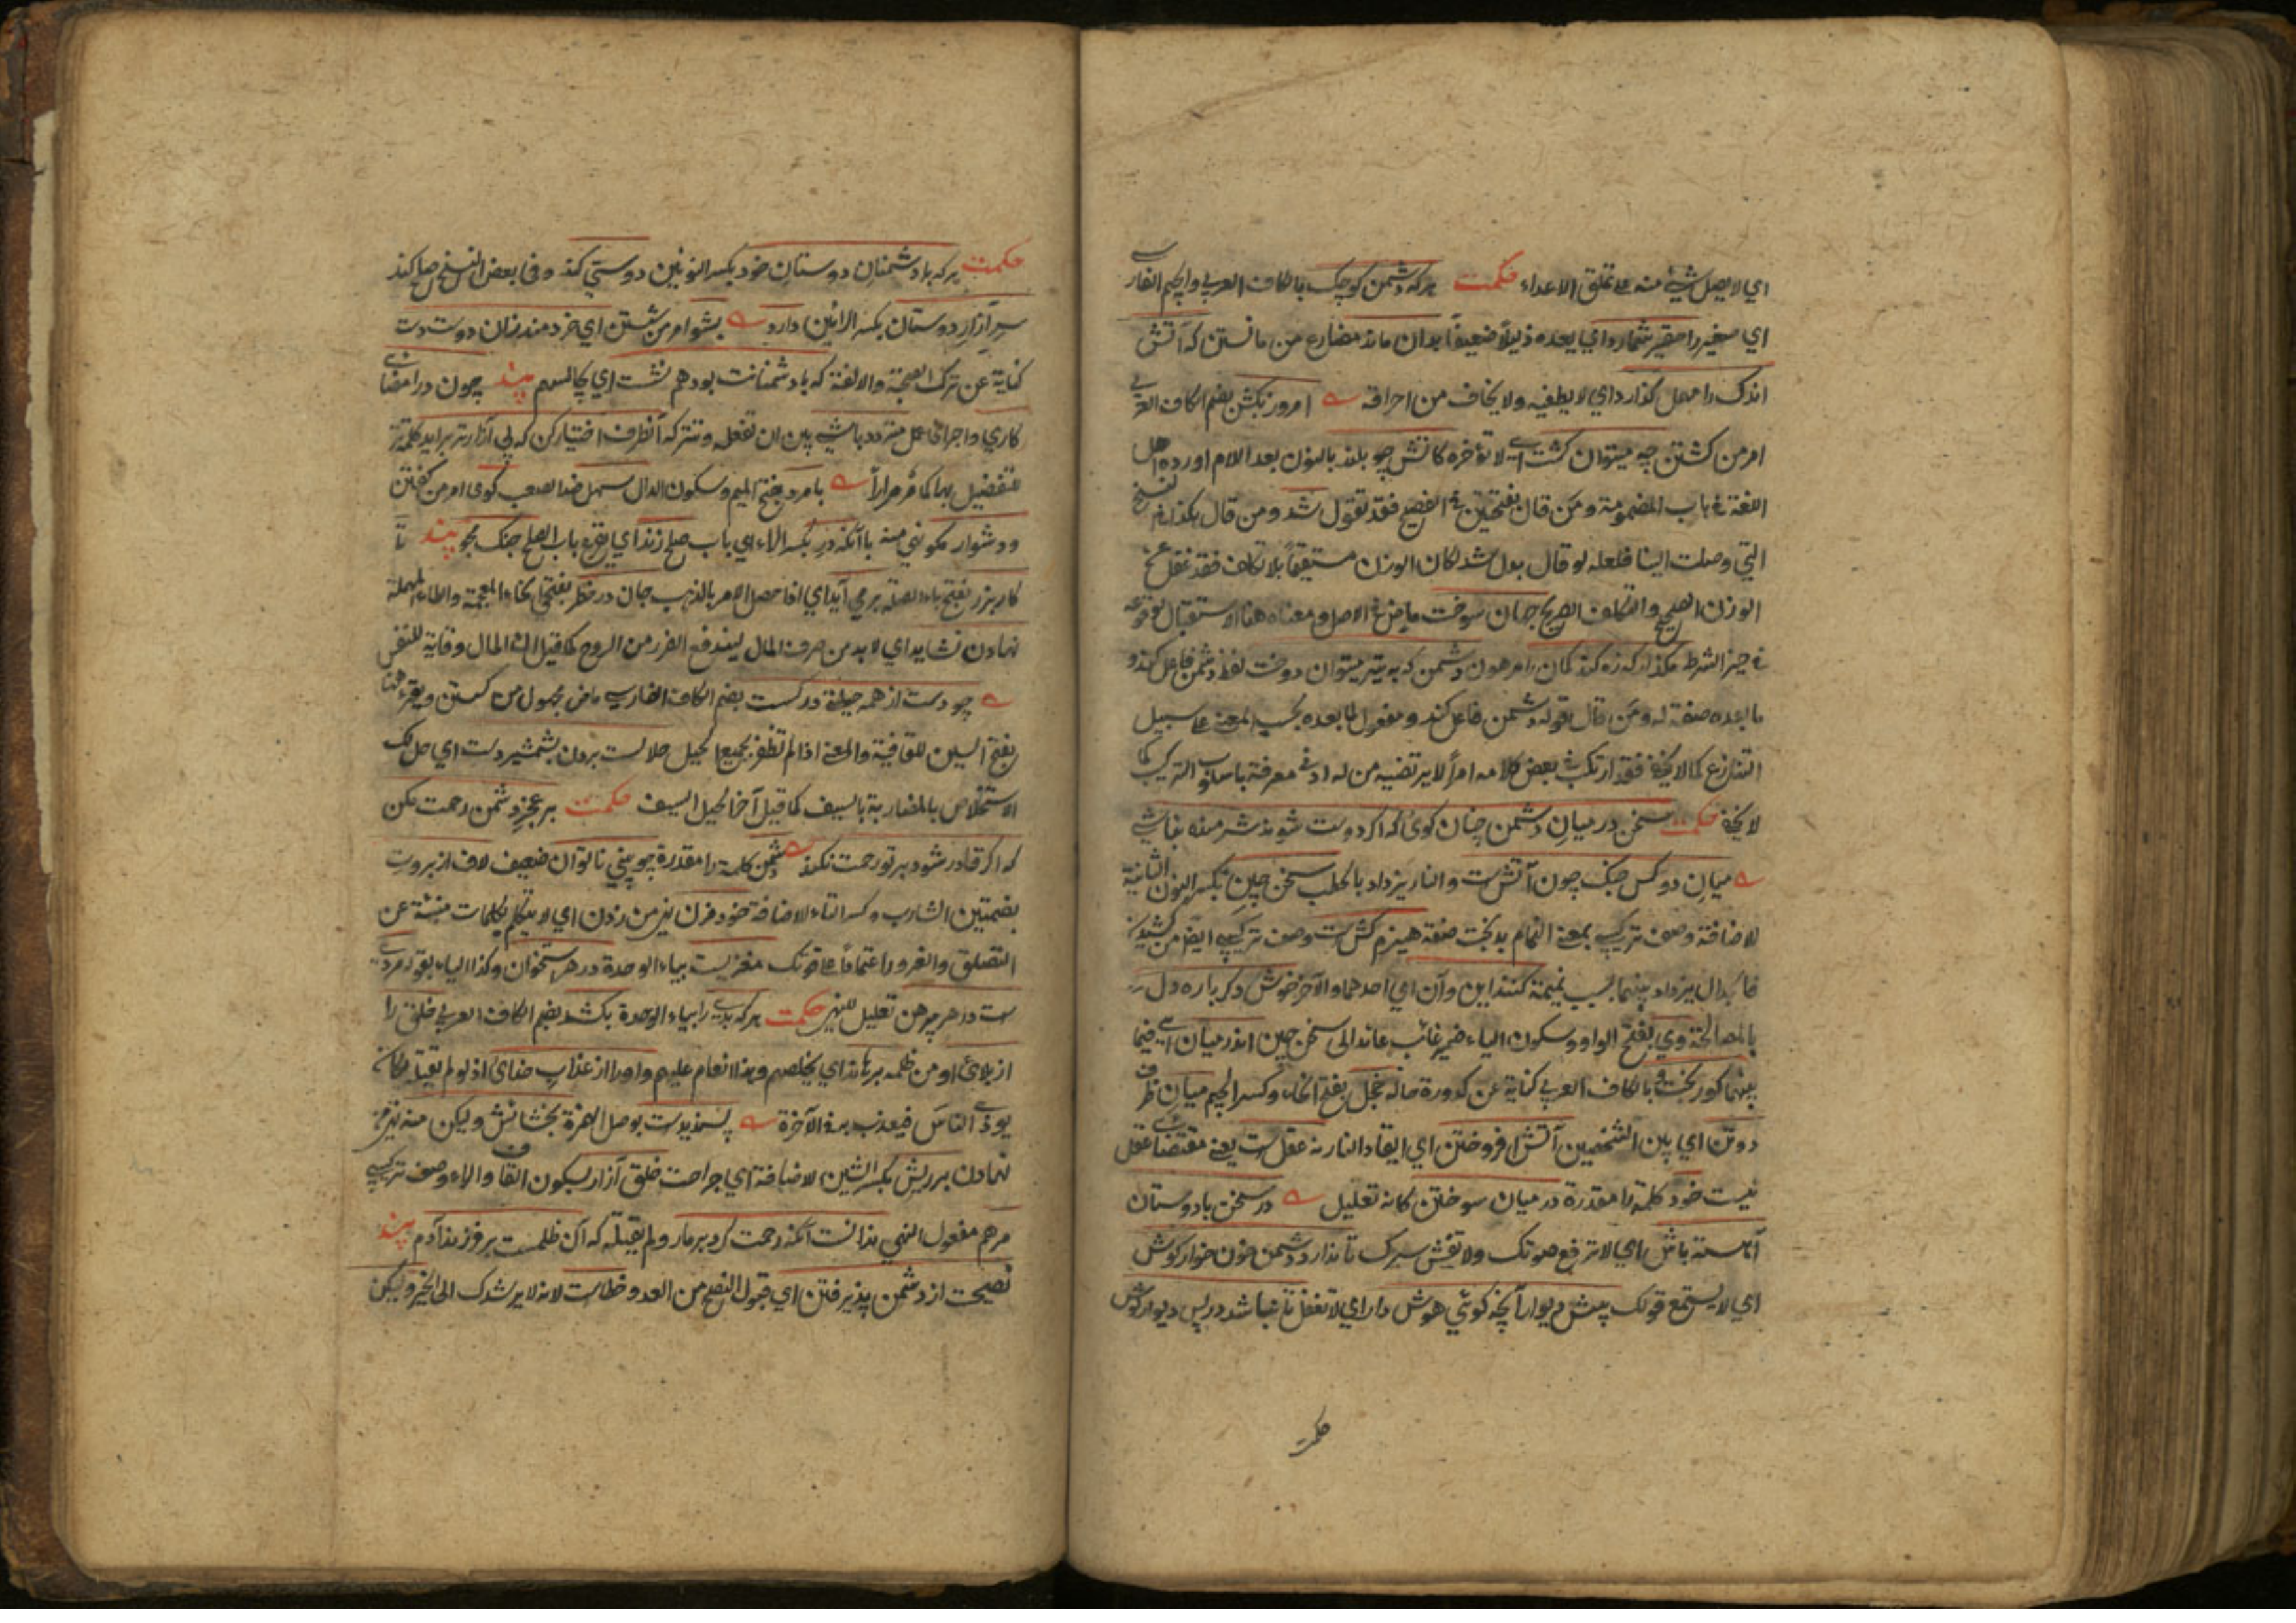 اي لا يصل شيء منه علي تملق الاعداء حكمت هركه دشمن كوچك بالكاف العربي والجيم الفارسي
اي صغير را حقير شمارد اي يعده ذليلا ضعيفا بدان ماند مضارع من مانستن كه آتش
اندك را مهمل كذارد اي لا يطفيه ولا يخاف من احراقه امروز بكش بضم الكاف العربي
امر من كشتن چو ميتوان كشت اي لا تؤخره كاتش چو بلند بالنون بعد اللام اورده اهل
اللغة في باب المضمومة ومن قال بفتحتين في الفصيح فقد تقول شد ومن قال هكذا في نسخ
التي وصلت الينا فلعله لو قال بدل شد لكان الوزن مستقيما بلا تكلف فقد غفل عن
الوزن الصحيح والتكلف الصريح جهان سوخت ماض في الاصل ومعناه هنا الاستقبال لوقوعه
في حيز الشرط مكذار كه زه كند كمان را مرهون دشمن كه به تير ميتوان دوخت لفظ دشمن فاعل كند و
ما بعده صفة له ومن قال قوله دشمن فاعل كند ومفعول لما بعده بحسب المعنى علي سبيل
التنازع كما لا يخفى فقد ارتكب في بعض كلامه امرا لا يرتضيه من له ادنى معرفة باسلوب التركيب كما
لا يخفى حكمت سخن در ميان دو دشمن چنان كوى كه اكر دوست شوند شرمنده نباشي
ميان دو كس جنك چون آتش است والنار يزداد بالحطب سخن چين بكسر النون الثانية
للاضافة وصف تركيبي بمعنى النمام بدبخت صفة هيزم كش است وصف تركيبي ايضا من كشيدن
فالجدال يزداد بينهما بسبب نميمة كنند اين وآن اي احدهما والآخر خوش دكر باره دل
بالمصالحة وي بفتح الواو وسكون الياء ضمير غائب عائد الى سخن چين اندر ميان اي فيما
بينهما كور بخت بالكاف العربي كناية عن كدورة حاله خجل بفتح الخاء وكسر الجيم ميان ظرف
دو تن اي بين الشخصين آتش افروختن اي ايقاد النار نه عقلست يعني مقتضاي عقل
نيست خود كلمة را مقدرة در ميان سوختن كانه تعليل در سخن با دوستان
آهسته باش اي لا ترفع صوتك ولا تفش سرك تا ندارد دشمن خون خوار كوش
اي لا يستمع قولك پيش ديوار آنچه كوئي هوش دار اي لا تغفل تا نباشد در پس ديوار كوش
حكمت
حكمت هركه با دشمنان دوستان خود بكسر النونين دوستي كند وفي بعض النسخ صلح كند
سر آزار دوستان بكسر الرائين دارد بشو امر من شستن اي خردمند زان دوست دست
كناية عن ترك الصحبة والالفة كه با دشمنانت بود هم نشست اي يجالسهم پند چون در امضاي
كاري واجراي عمل متردد باشي بين ان تفعله وتتركه آنطرف اختيار كن كه بي آزارتر برايد كلمة تر
للتفضيل بها كما مر مرارا با مردم بفتح الميم وسكون الدال سهل ضد الصعب كوى امر من كفتن
ودشوار مكو نهي منه با آنكه در بكسر الراء اي باب صلح زند اي يقرع باب الصلح جنك مجو پند تا
كار بزر بفتح باء الصلة بر مي آيد اي اذا حصل الامر بالذهب جان در خطر بفتحتي الخاء المعجمة والطاء المهملة
نهادن نشايد اي لا بد من صرف المال ليندفع الضرر من الروح كما قيل ان المال وقاية للنفس
چو دست از همه حيلة در كسست بضم الكاف الفارسي ماض مجهول من كسستن ويقرء هنا
بفتح السين للقافية والمعنى اذا لم تظفر بجميع الحيل حلالست بردن بشمشير دست اي حل لك
الاستخلاص بالمضاربة بالسيف كما قيل آخر الحيل السيف حكمت بر عجز دشمن رحمت مكن
كه اكر قادر شود بر تو رحمت نكند دشمن كلمة را مقدرة چو بيني ناتوان ضعيف لاف از بروت
بضمتين الشارب وكسر التاء للاضافة خود مزن نهي من زدن اي لا تتكلم بكلمات منبئة عن
التصلق والغرور اعتمادا علي قوتك مغزيست بياء الوحدة در هر استخوان وكذا الياء بقوله مردي
ست در هر پيرهن تعليل للنهي حكمت هركه بدي را بياء الوحدة بكشد بضم الكاف العربي خلق را
از بلاي او من ظلمه برهاند اي يخلصهم وهذا انعام عليهم واو را از عذاب خداي اذ لو لم يقتله لكان
يؤذي الناس فيعذب به في الآخرة پسنديدست بوصل الهمزة بخشايش وليكن منه نهي من
نهادن بر ريش بكسر الشين للاضافة اي جراحت خلق آزار بسكون القاف والراء وصف تركيبي
مرهم مفعول النهي ندانست آنكه رحمت كرد بر مار ولم يقتله كه آن ظلمست بر فرزند آدم پند
نصيحت از دشمن پذيرفتن اي قبول النصح من العدو خطاست لانه لا يرشدك الى الخير وليكن